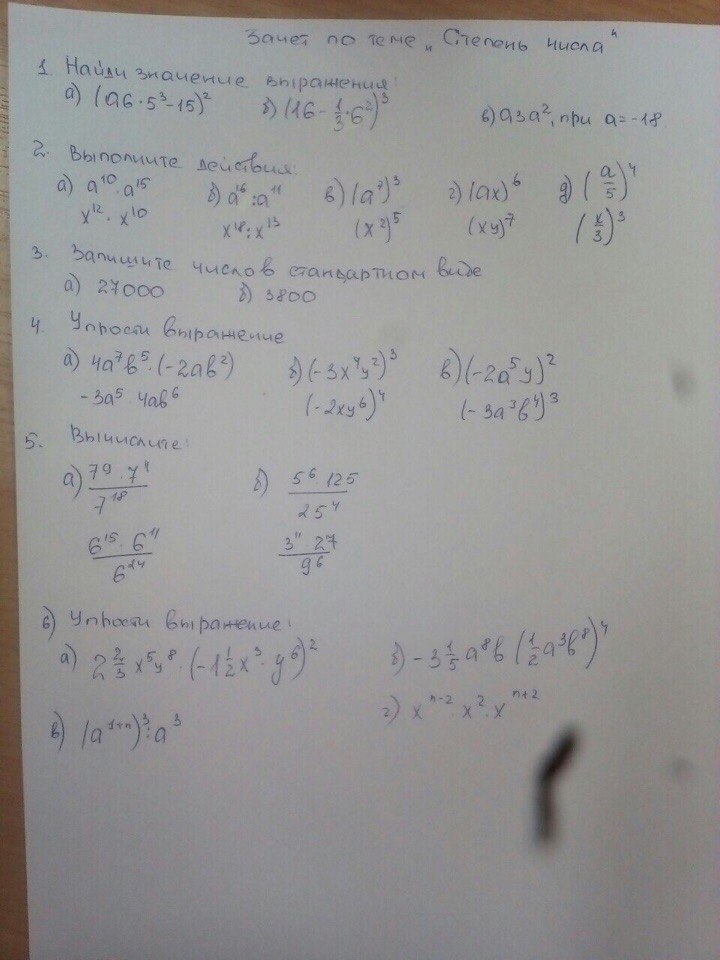 Зачет по теме „Степень числа"
1. Найди значение выражения:
а) (a6·5³-15)² б) (16-1/3·6²)³ в) a3a², при a=-18
2. Выполните действия:
а) a¹⁰·a¹⁵ б) a¹⁶:a¹¹ в) (a⁷)³ г) (ax)⁶ д) (a/5)⁴
x¹²·x¹⁰ x¹⁸:x¹³ (x²)⁵ (xy)⁷ (x/3)³
3. Запишите числов стандартном виде
а) 27000 б) 3800
4. Упрости выражение
а) 4a⁷b⁵·(-2ab²) б) (-3x⁴y²)³ в) (-2a⁵y)²
-3a⁵·4ab⁶ (-2xy⁶)⁴ (-3a³b⁴)³
5. Вычислите:
а) 7⁹·7¹¹/7¹⁸ б) 5⁶·125/25⁴
6¹⁵·6¹¹/6²⁴ 3¹¹·27/9⁶
6) Упрости выражение:
а) 2 2/3 x⁵y⁸·(-1 1/2 x³·y⁶)² б) -3 1/5 a⁸b (1/2 a³b⁸)⁴
в) (a¹⁺ⁿ)³:a³ г) xⁿ⁻²·x²·xⁿ⁺²